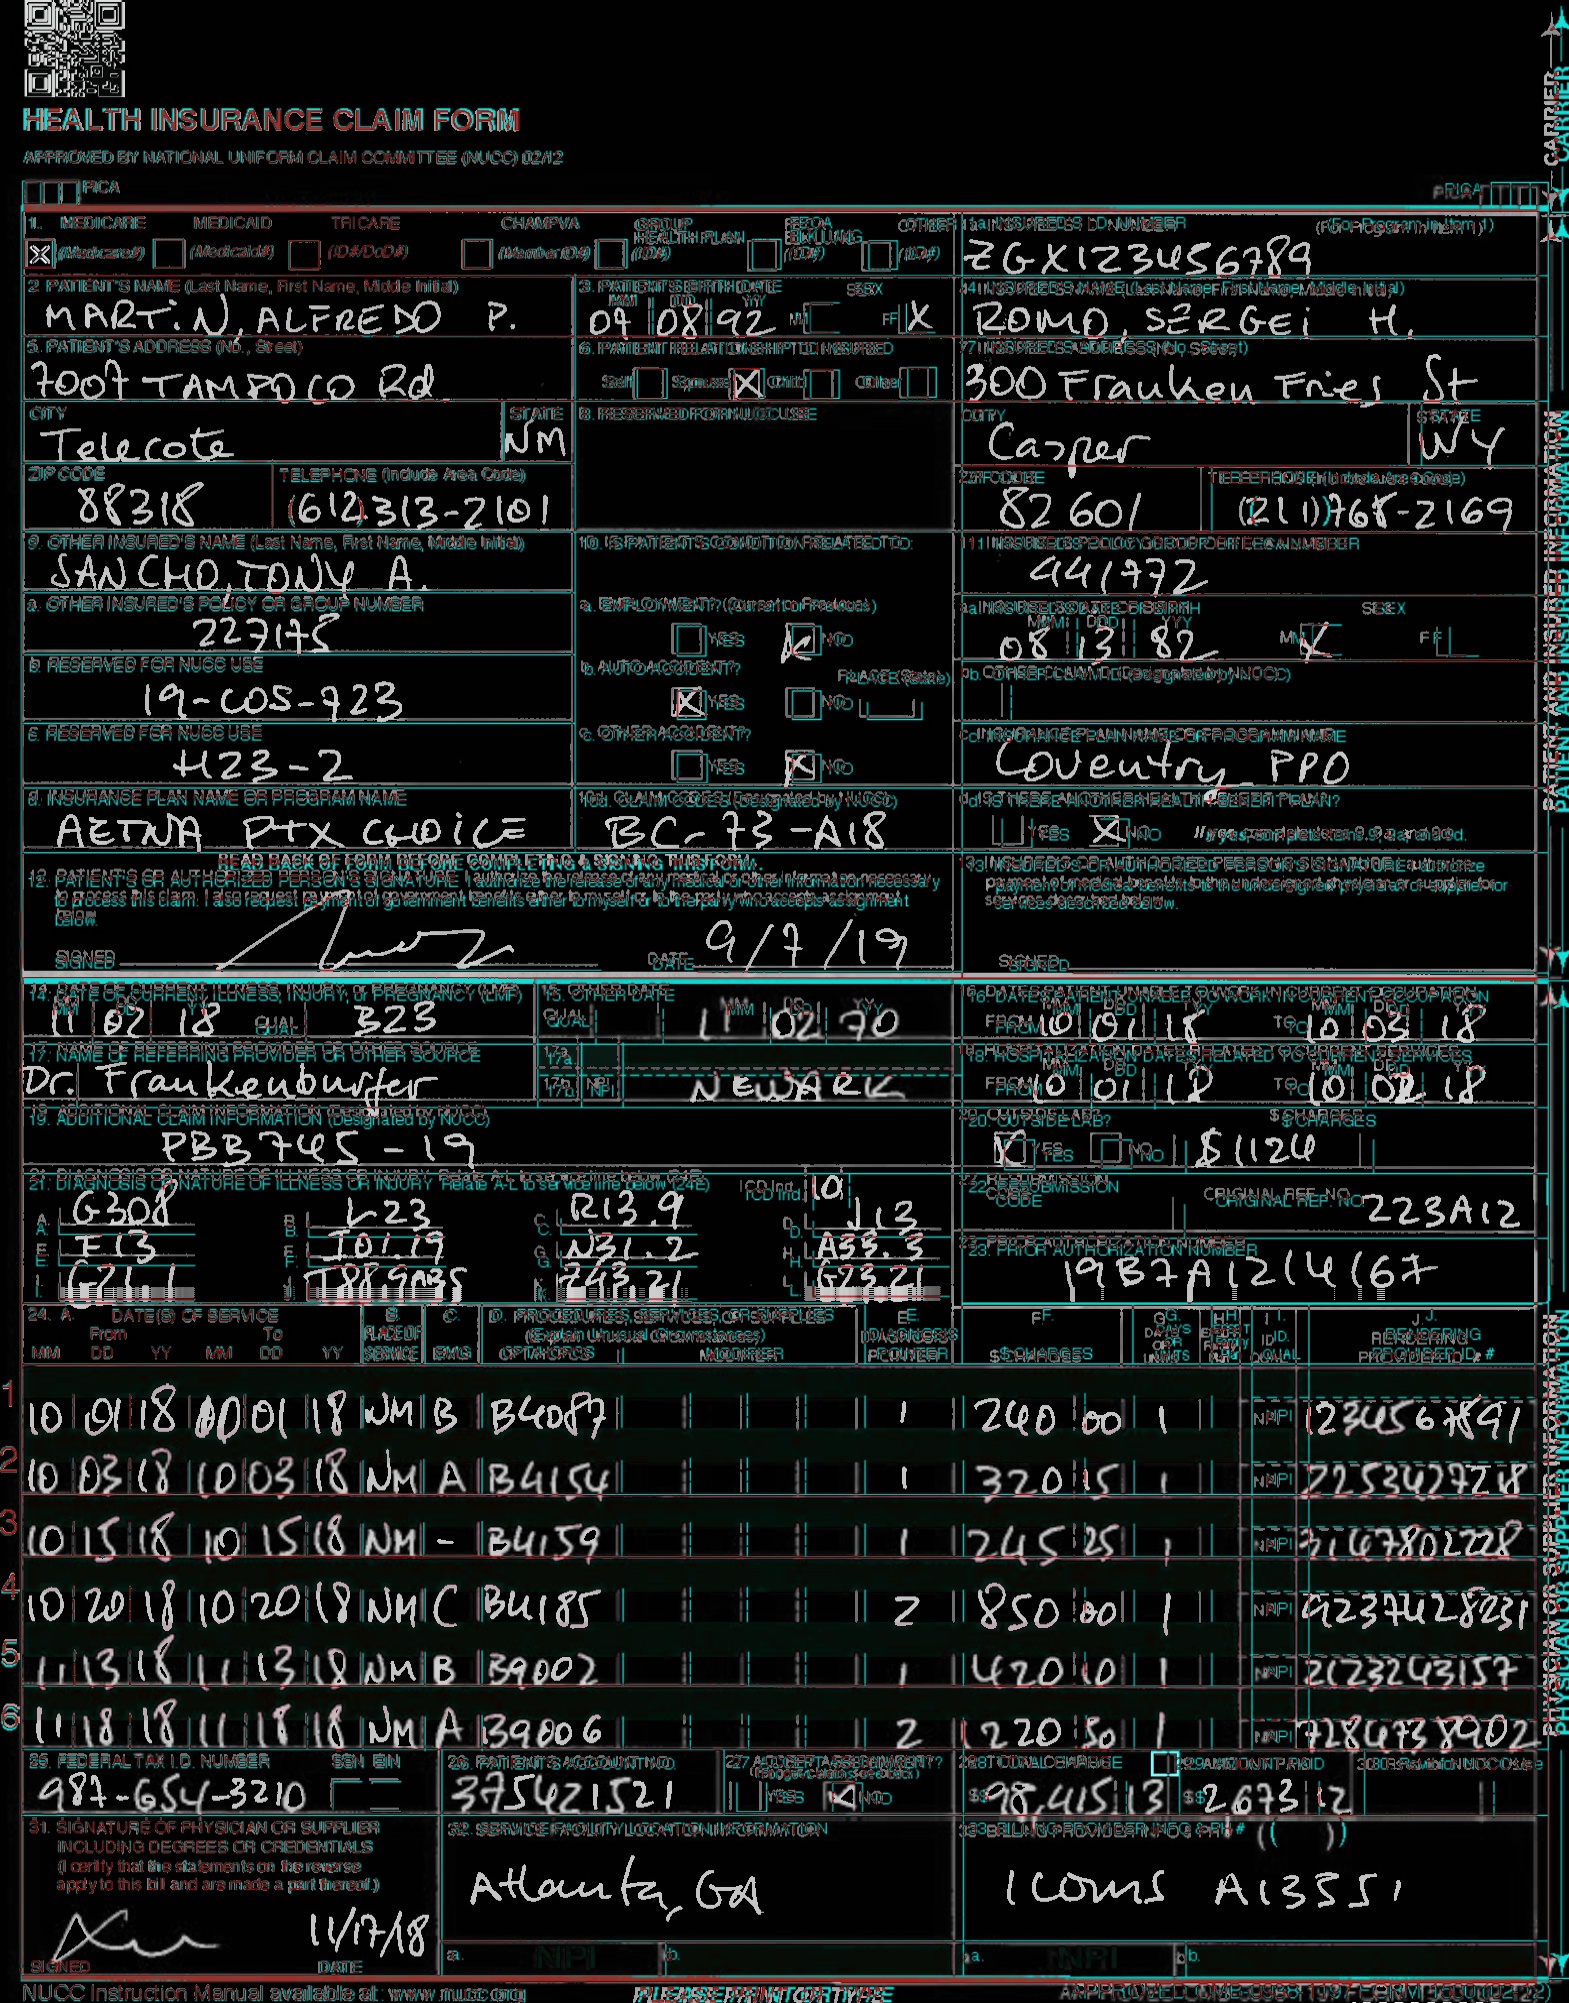 HEALTH INSURANCE CLAIM FORM
APPROVED BY NATIONAL UNIFORM CLAIM COMMITTEE (NUCC) 02/12
PICA
PICA
CARRIER
1. MEDICARE MEDICAID TRICARE CHAMPVA GROUP HEALTH PLAN FECA BLK LUNG OTHER
(Medicare#) (Medicaid#) (ID#/DoD#) (Member ID#) (ID#) (ID#) (ID#)
1a. INSURED'S I.D. NUMBER (For Program in Item 1)
ZGX123456789
2. PATIENT'S NAME (Last Name, First Name, Middle Initial)
MARTiN, ALFREDO P.
3. PATIENT'S BIRTH DATE SEX
MM DD YY
04 08 92 M F X
4. INSURED'S NAME (Last Name, First Name, Middle Initial)
ROMO, SERGEi H.
5. PATIENT'S ADDRESS (No., Street)
7007 TAMPOCO Rd
6. PATIENT RELATIONSHIP TO INSURED
Self Spouse X Child Other
7. INSURED'S ADDRESS (No., Street)
300 Franken Fries St
CITY STATE
Telecote NM
8. RESERVED FOR NUCC USE
CITY STATE
Casper WY
ZIP CODE TELEPHONE (Include Area Code)
88318 (612) 313-2101
ZIP CODE TELEPHONE (Include Area Code)
82601 (211) 768-2169
9. OTHER INSURED'S NAME (Last Name, First Name, Middle Initial)
SANCHO, TONY A.
10. IS PATIENT'S CONDITION RELATED TO:
11. INSURED'S POLICY GROUP OR FECA NUMBER
441772
a. OTHER INSURED'S POLICY OR GROUP NUMBER
227175
a. EMPLOYMENT? (Current or Previous)
YES X NO
a. INSURED'S DATE OF BIRTH SEX
MM DD YY
08 13 82 M X F
b. RESERVED FOR NUCC USE
19-COS-723
b. AUTO ACCIDENT? PLACE (State)
X YES NO
b. OTHER CLAIM ID (Designated by NUCC)
c. RESERVED FOR NUCC USE
H23-2
c. OTHER ACCIDENT?
YES X NO
c. INSURANCE PLAN NAME OR PROGRAM NAME
Coventry PPO
d. INSURANCE PLAN NAME OR PROGRAM NAME
AETNA PTX CHOiCE
10d. CLAIM CODES (Designated by NUCC)
BC-73-A18
d. IS THERE ANOTHER HEALTH BENEFIT PLAN?
YES X NO If yes, complete items 9, 9a, and 9d.
READ BACK OF FORM BEFORE COMPLETING & SIGNING THIS FORM.
12. PATIENT'S OR AUTHORIZED PERSON'S SIGNATURE I authorize the release of any medical or other information necessary
to process this claim. I also request payment of government benefits either to myself or to the party who accepts assignment
below.
SIGNED DATE 9/7/19
13. INSURED'S OR AUTHORIZED PERSON'S SIGNATURE I authorize
payment of medical benefits to the undersigned physician or supplier for
services described below.
SIGNED
PATIENT AND INSURED INFORMATION
14. DATE OF CURRENT ILLNESS, INJURY, or PREGNANCY (LMP)
MM DD YY
11 02 18 QUAL. B23
15. OTHER DATE
QUAL. MM DD YY
11 02 70
16. DATES PATIENT UNABLE TO WORK IN CURRENT OCCUPATION
MM DD YY MM DD YY
FROM 10 01 18 TO 10 03 18
17. NAME OF REFERRING PROVIDER OR OTHER SOURCE
Dr. Frankenburger
17a.
17b. NPI NEWARK
18. HOSPITALIZATION DATES RELATED TO CURRENT SERVICES
MM DD YY MM DD YY
FROM 10 01 18 TO 10 02 18
19. ADDITIONAL CLAIM INFORMATION (Designated by NUCC)
PBB745-19
20. OUTSIDE LAB? $ CHARGES
X YES NO $1124
21. DIAGNOSIS OR NATURE OF ILLNESS OR INJURY Relate A-L to service line below (24E) ICD Ind. 10
A. G308 B. L23 C. R13.9 D. J13
E. F13 F. I01.19 G. N31.2 H. A33.3
I. G21.1 J. K. L. G23.21
22. RESUBMISSION CODE ORIGINAL REF. NO.
223A12
23. PRIOR AUTHORIZATION NUMBER
19B7A1214167
24. A. DATE(S) OF SERVICE B. C. D. PROCEDURES, SERVICES, OR SUPPLIES E. F. G. H. I. J.
From To PLACE OF (Explain Unusual Circumstances) DIAGNOSIS DAYS OR ID. RENDERING
MM DD YY MM DD YY SERVICE EMG CPT/HCPCS MODIFIER POINTER $ CHARGES UNITS QUAL. PROVIDER ID. #
1 10 01 18 10 01 18 NM B B4087 1 240 00 1 NPI 1234567891
2 10 03 18 10 03 18 NM A B4154 1 320 15 1 NPI 2253427218
3 10 15 18 10 15 18 NM - B4159 1 245 25 1 NPI 3167802228
4 10 20 18 10 20 18 NM C B4185 2 850 00 1 NPI 9237428231
5 11 13 18 11 13 18 NM B B9002 1 420 10 1 NPI 2123243157
6 11 18 18 11 18 18 NM A B9006 2 1220 30 1 NPI 7284738902
25. FEDERAL TAX I.D. NUMBER SSN EIN
987-654-3210
26. PATIENT'S ACCOUNT NO.
375421521
27. ACCEPT ASSIGNMENT?
YES X NO
28. TOTAL CHARGE
$ 98,415 13
29. AMOUNT PAID
$ 2,673 12
30. Rsvd for NUCC Use
31. SIGNATURE OF PHYSICIAN OR SUPPLIER
INCLUDING DEGREES OR CREDENTIALS
(I certify that the statements on the reverse
apply to this bill and are made a part thereof.)
11/17/18
SIGNED DATE
32. SERVICE FACILITY LOCATION INFORMATION
Atlanta, GA
a. NPI b.
33. BILLING PROVIDER INFO & PH # ( )
1COMS A13551
a. NPI b.
PHYSICIAN OR SUPPLIER INFORMATION
NUCC Instruction Manual available at: www.nucc.org
PLEASE PRINT OR TYPE